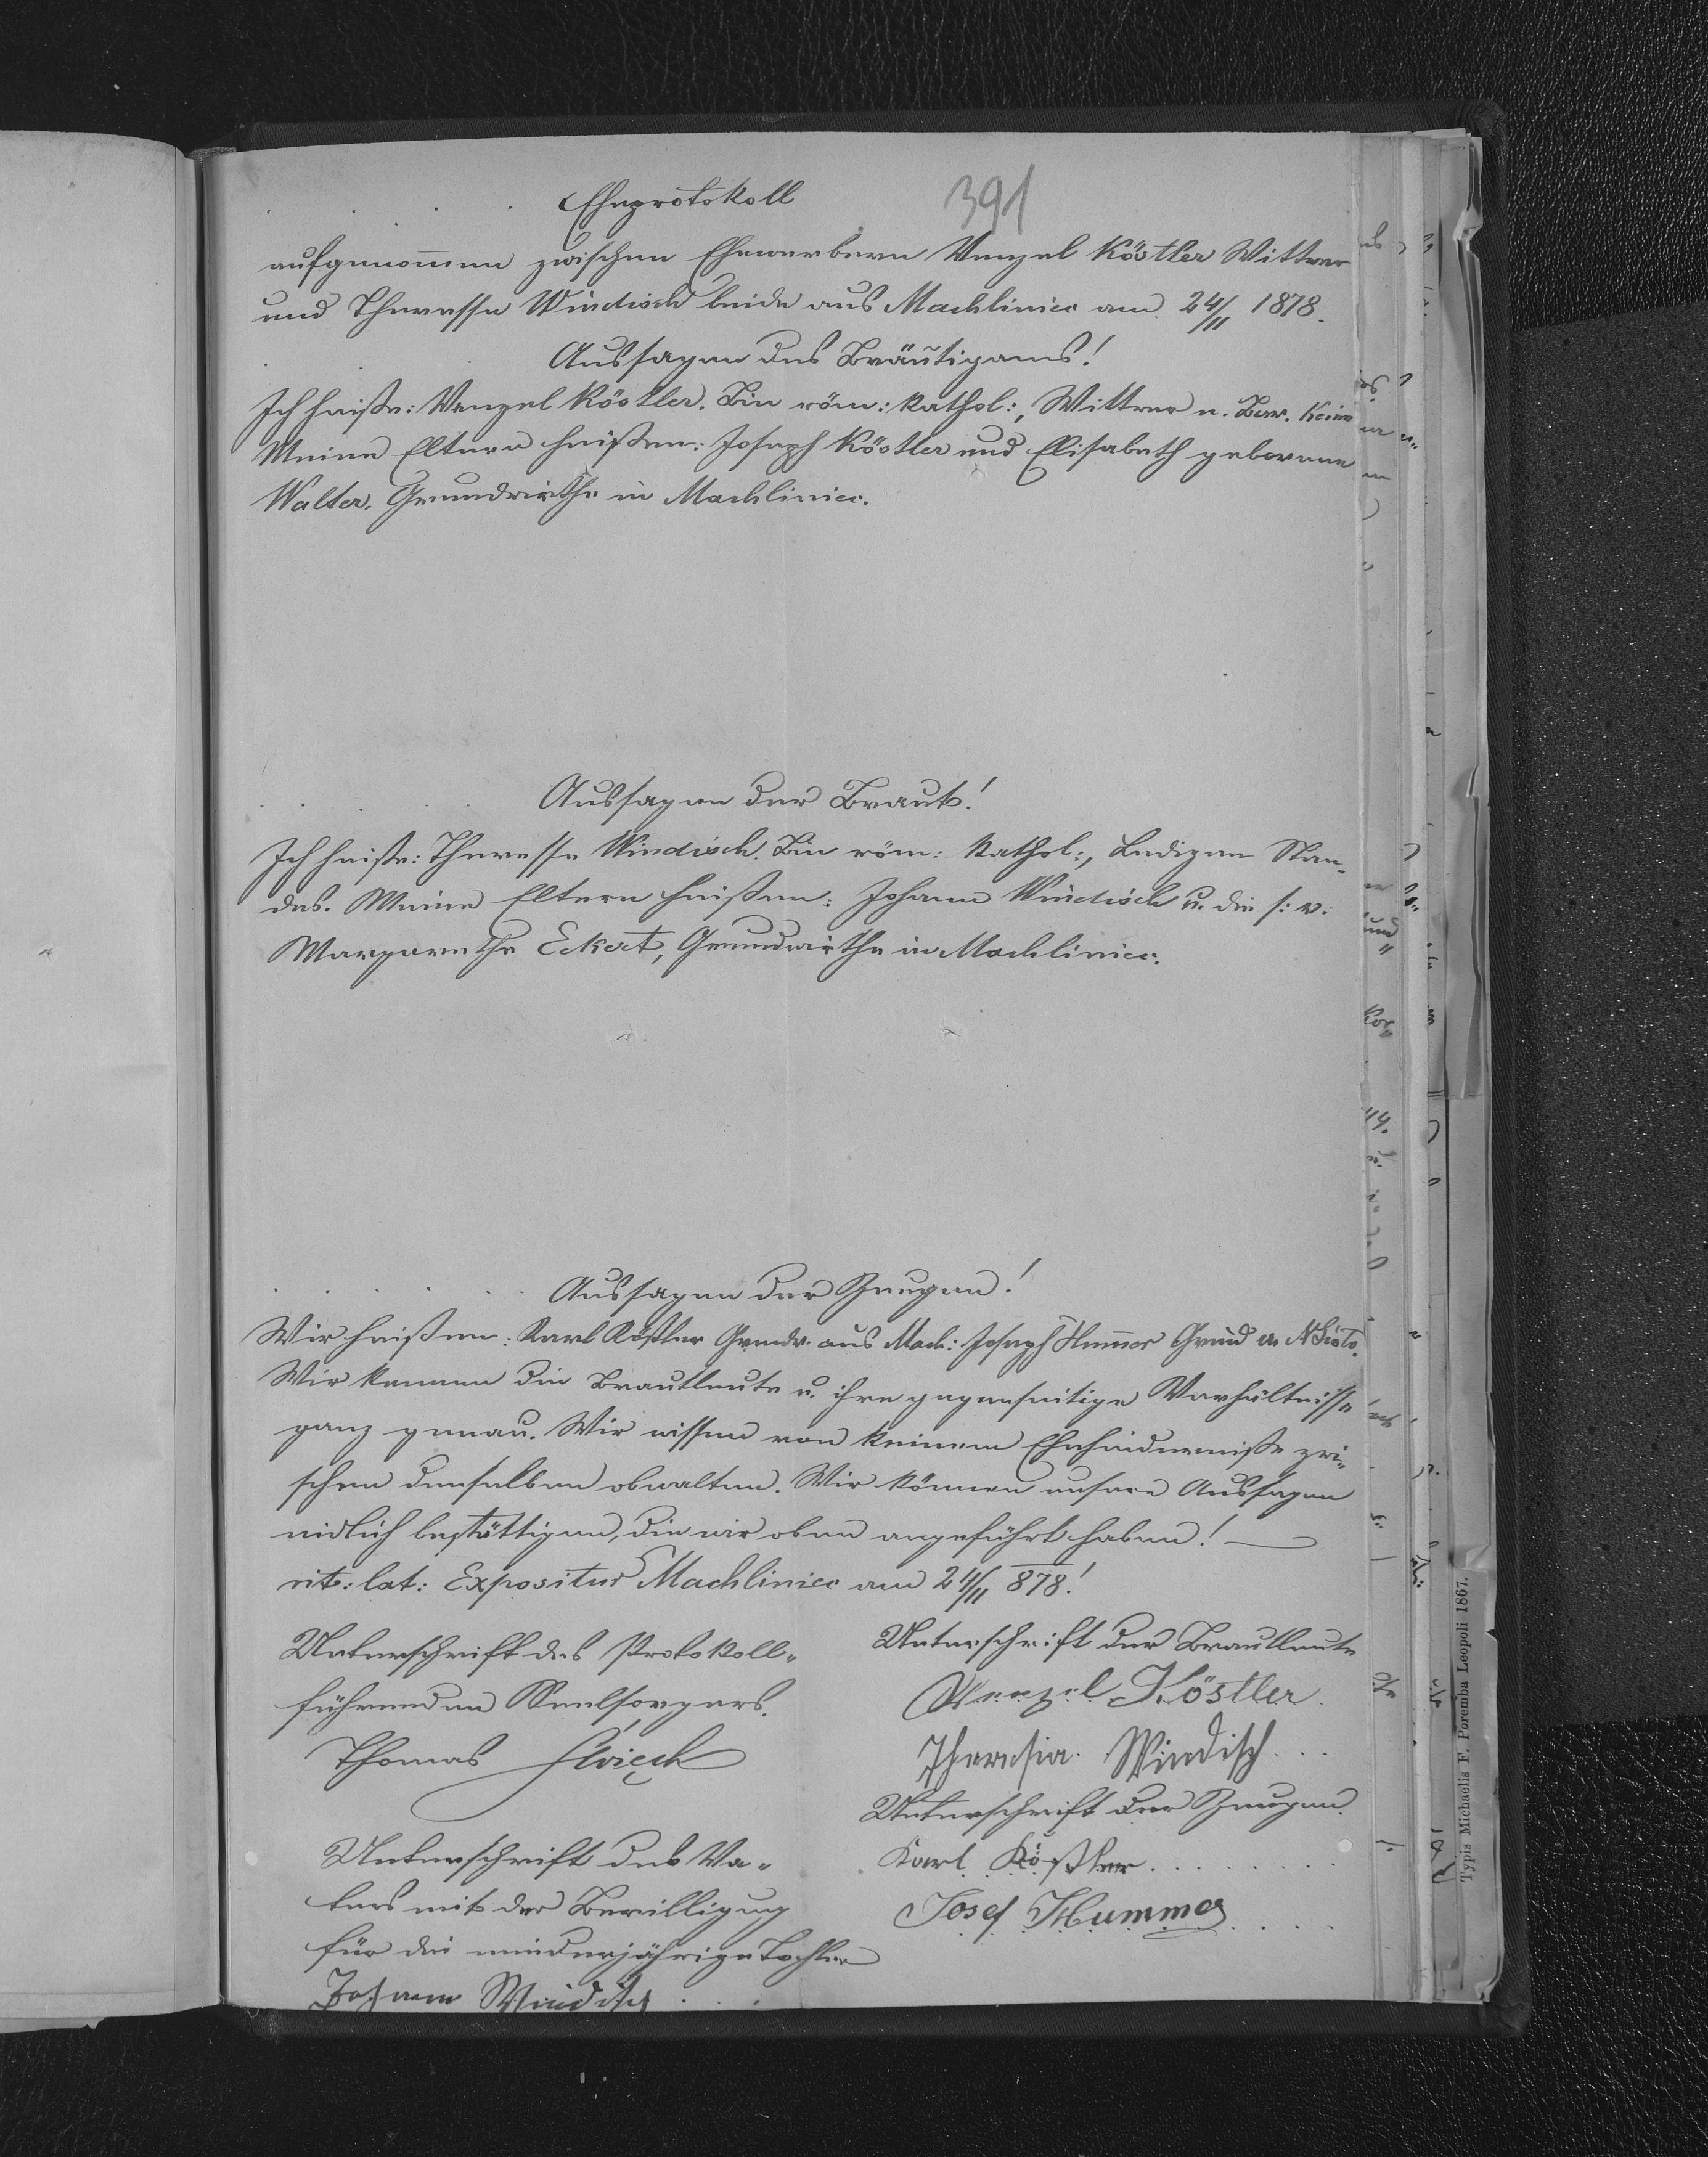 Eheprotokoll
391
aufgenommen zwischen Ehewerbern Wenzel Köstler Wittwer
und Theresse Windisch beide aus Machliniec am 24/11 1878.
Aussagen des Bräutigams!
Ich heiße: Wenzel Köstler. Bin röm: kathol:, Wittwer u.
Meine Eltern heißen: Joseph Köstler und Elisabeth geborene
Walter. Grundwirthe in Machliniec.
Aussagen der Braut!
Ich heiße: Theresse Windisch. Bin röm: kathol:, Ledigen Stan-
des. Meine Eltern heißen: Johann Windisch u. die s: v:
Margarethe Eckert, Grundwirthe in Machliniec.
Aussagen der Zeugen!
Wir heißen: Karl Kößler Grundw. aus Mach: Joseph Hummer Grund
Wir kennen die Brautleute u. ihre gegenseitige Verhältnisse
ganz genau. Wir wissen von keinem Ehehinderniße zwi-
schen denselben obwalten. Wir können unsere Aussagen
eidlich bestättigen, die wir oben angeführt haben! —
rit: lat: Expositur Machliniec am 24/11 878!
Unterschrift des Protokoll-
führenden Seelsorgers.
Thomas
Unterschrift der Brautleute
Wenzel Köstler.
Theresia Windisch...
Unterschrift der Zeugen.
Karl Kößler.........
Josef Hummer....
Unterschrift des Va-
ters mit der Bewilligung
für die minderjährige Tochter
Johann Windisch...
Typis Michaelis F. Poremba Leopoli 1867.